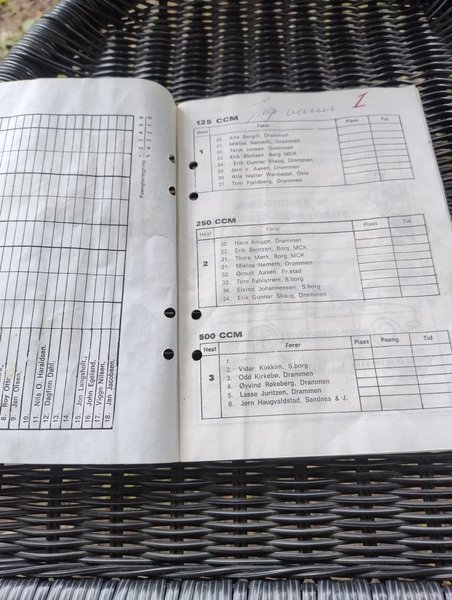 8. Roy Oth
9. Jan Olsen,
10.
11. Nils O. Haraldsen
12. Dagfinn Dahl,
13.
14.
15. Jon Langaholt,
16. John Egeland,
17. Viggo Nilsen,
18. Jan Jacobsen,
125 CCM
I
Heat Fører Plass Tid
1
20. Atle Bergill, Drammen
21. Miklos Nemeth, Drammen
22. Terje Jensen, Drammen
23. Erik Bentzen, Borg MCK
24. Erik Gunnar Skaug, Drammen
25. Jørn V. Aasen, Drammen
26. Atle Møller Warmedal, Oslo
27. Tom Fjeldberg, Drammen
250 CCM
Heat Fører Plass Tid
2
30. Hans Knigge, Drammen
23. Erik Bentzen, Borg MCK
31. Thore Mørk, Borg MCK
21. Miklos Nemeth, Drammen
32. Ørnulf Aasen, Fr.stad
33. Tore Fahlstrøm, S.borg
34. Eivind Johannessen, S.borg
24. Erik Gunnar Skaug, Drammen
500 CCM
Heat Fører Plass Poeng Tid
3
1.
2. Vidar Kokkim, S.borg
3. Odd Kirkebø, Drammen
4. Øyvind Røkeberg, Drammen
5. Lasse Juritzen, Drammen
6. Jørn Haugvaldstad, Sandnes & J.